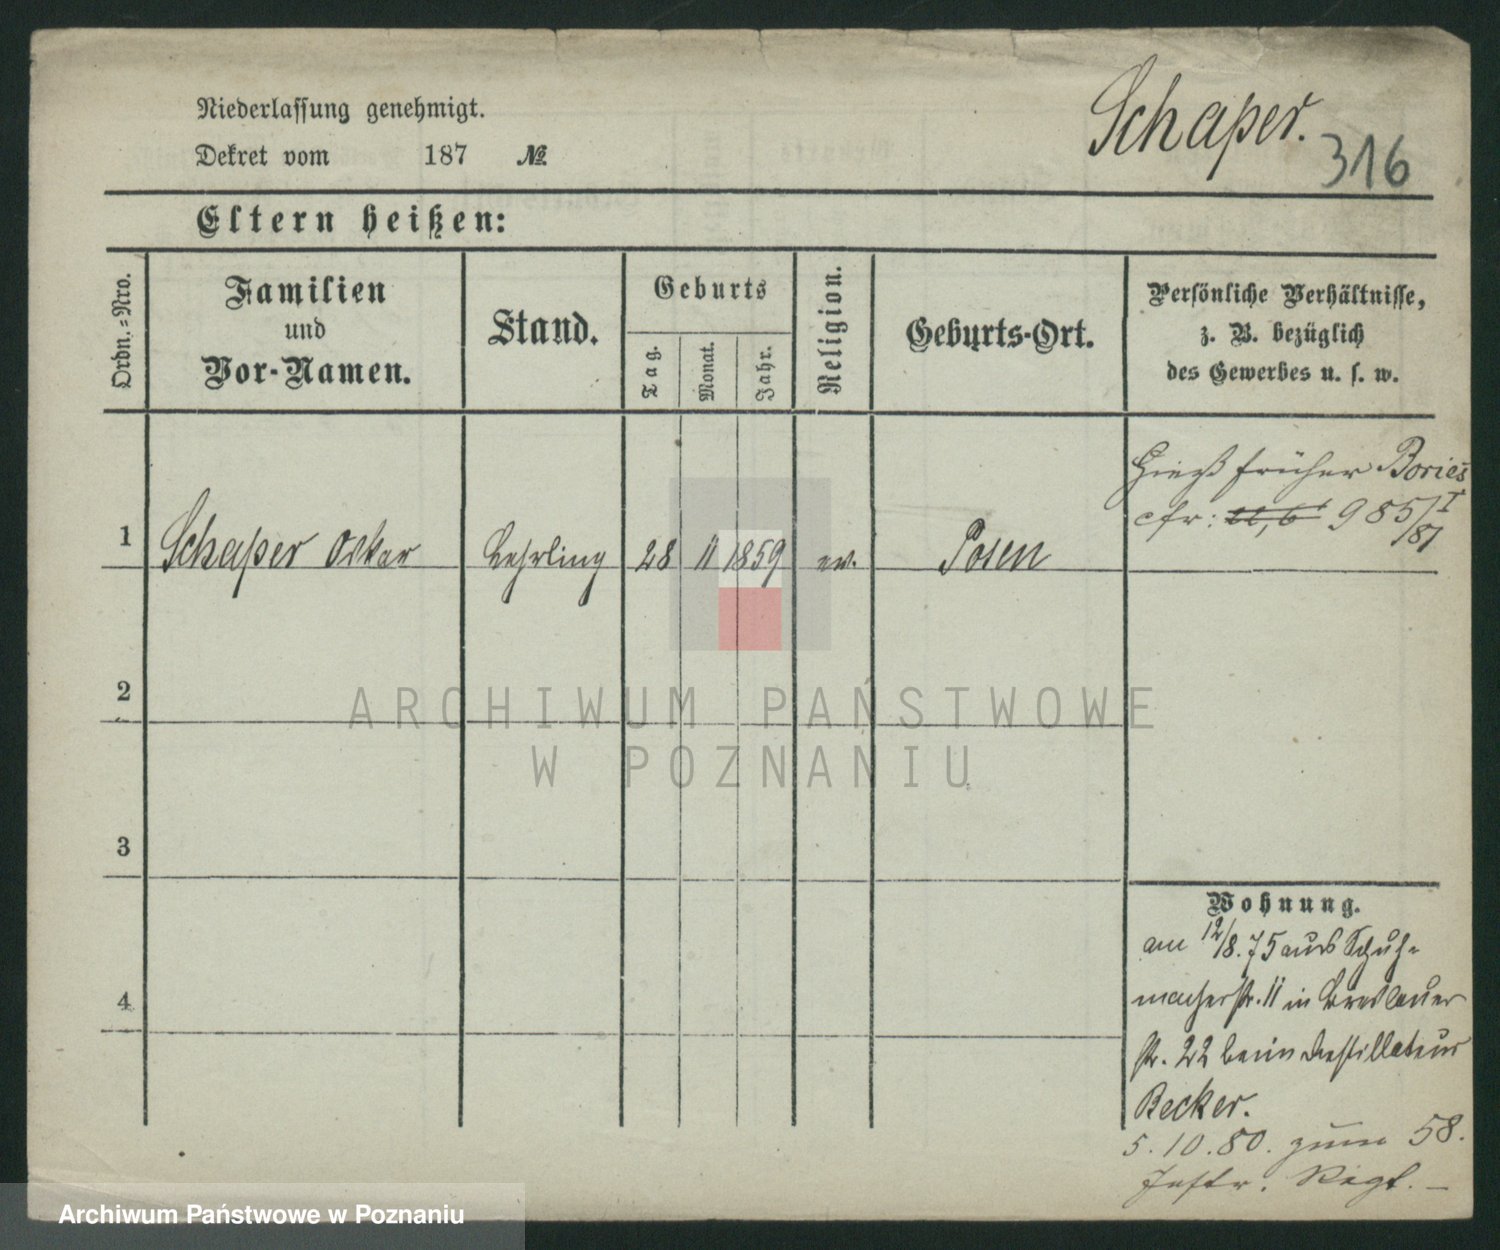 Niederlassung genehmigt.
Schaper.
Dekret vom 187 №
316
Eltern heißen:
Ordn.=Nro.
Familien
und
Vor-Namen.
Stand.
Geburts
Tag.
Monat.
Jahr.
Religion.
Geburts-Ort.
Persönliche Verhältnisse,
z. B. bezüglich
des Gewerbes u. s. w.
Hieß früher Bories
cfr: 985/I
/81
1 Schaper Oskar Lehrling 28 11 1859 ev. Posen
2
3
4
Wohnung.
am 12/8.75 aus Schuh-
macherstr. 11 in Breslauer
str. 22 beim Destillateur
Becker.
5.10.80. zum 58.
Inftr. Regt. —
ARCHIWUM PAŃSTWOWE
W POZNANIU
Archiwum Państwowe w Poznaniu